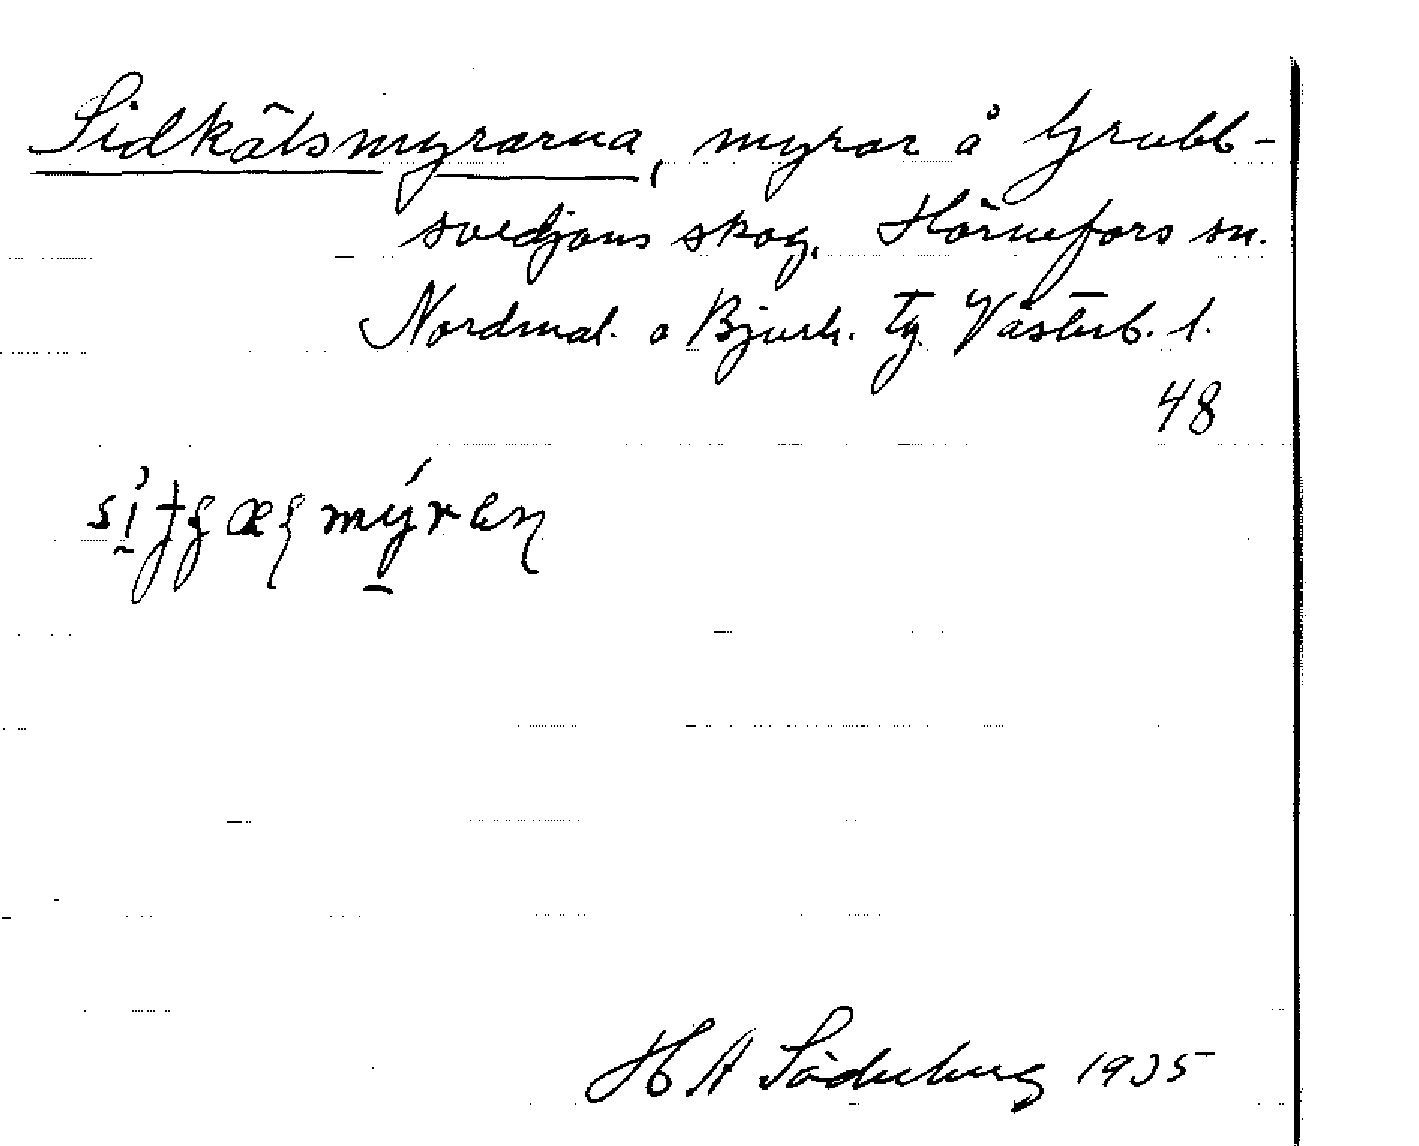 Sidkälsmyrarna, myrar å Grubb-
svedjans skog, Hörnefors sn.
Nordmal. o Bjurh. tg. Västerb. l.
48
mýren
H A Söderberg 1935